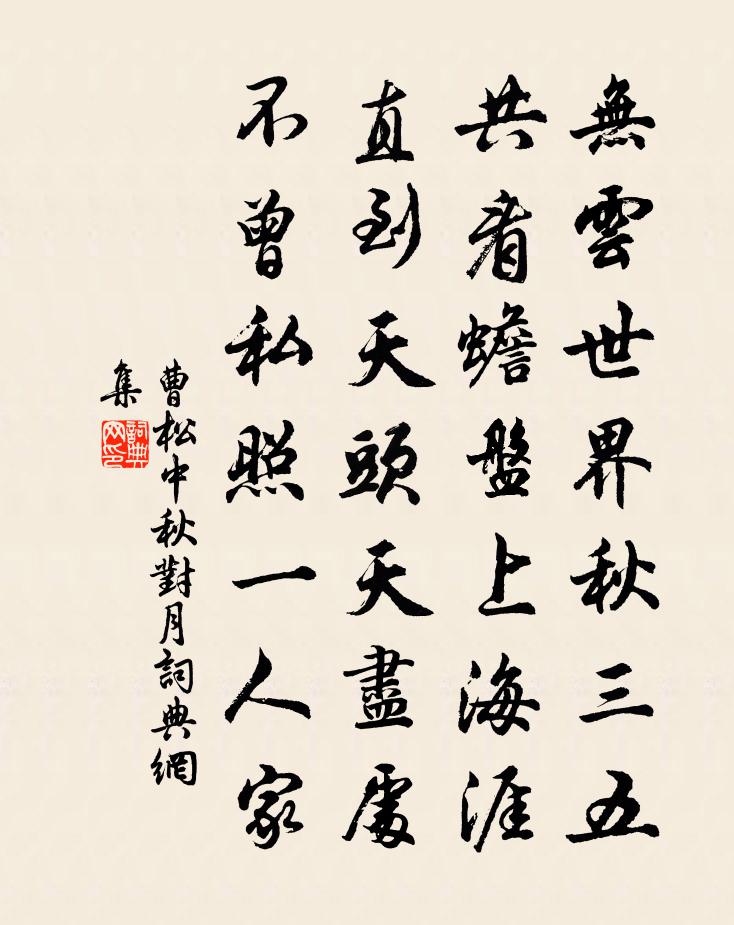 無雲世界秋三五
共看蟾盤上海涯
直到天頭天盡處
不曾私照一人家
曹松中秋對月詞典網
集
詞典
网印